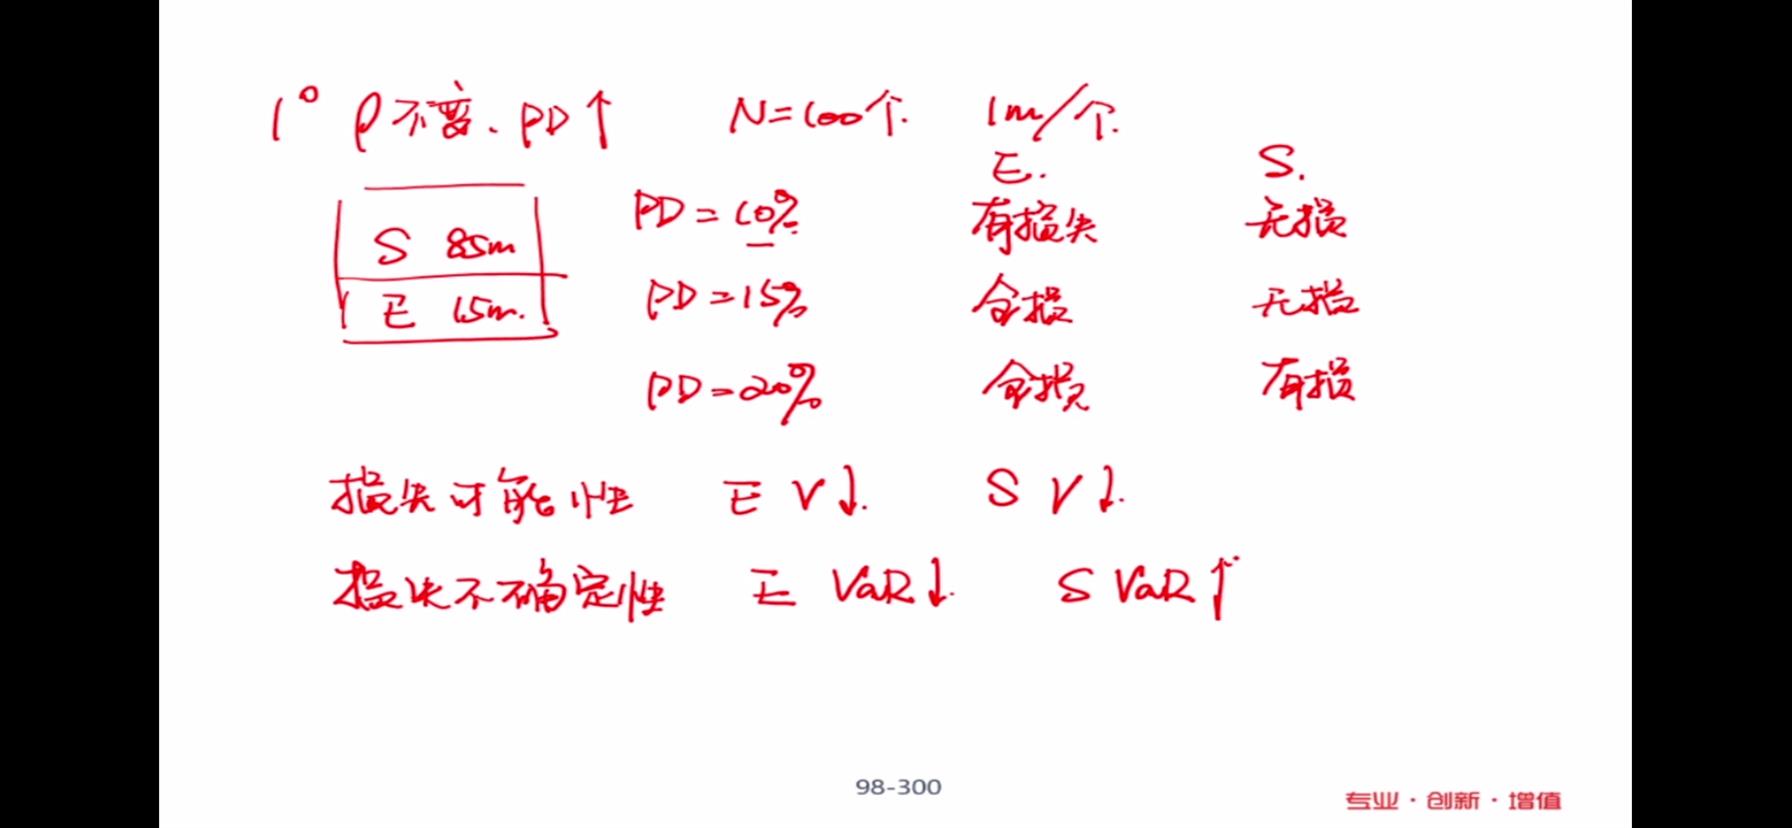 1° ρ不变、PD↑ N=100个. 1m/个.
E. S.
S 85m PD=10% 有损失 无损
E 15m. PD=15% 全损 无损
PD=20% 全损 有损
损失可能性 E V↓. S V↓.
损失不确定性 E VaR↓. S VaR↑
98-300
专业·创新·增值